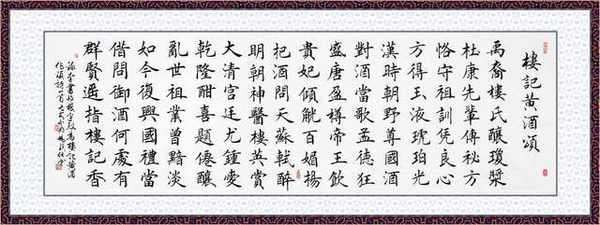 樓記黃酒頌
禹裔樓氏釀瓊漿
杜康先輩傳秘方
恪守祖訓凭良心
方得玉液琥珀光
漢時朝野尊國酒
對酒當歌孟德狂
盛唐盈樽帝王飲
貴妃傾觥百媚揚
把酒問天蘇軾醉
明朝神醫樓英賞
大清宮廷尤鍾愛
乾隆酣喜題僊釀
亂世祖業曾黯淡
如今復興國禮當
借問御酒何處有
群賢遥指樓記香